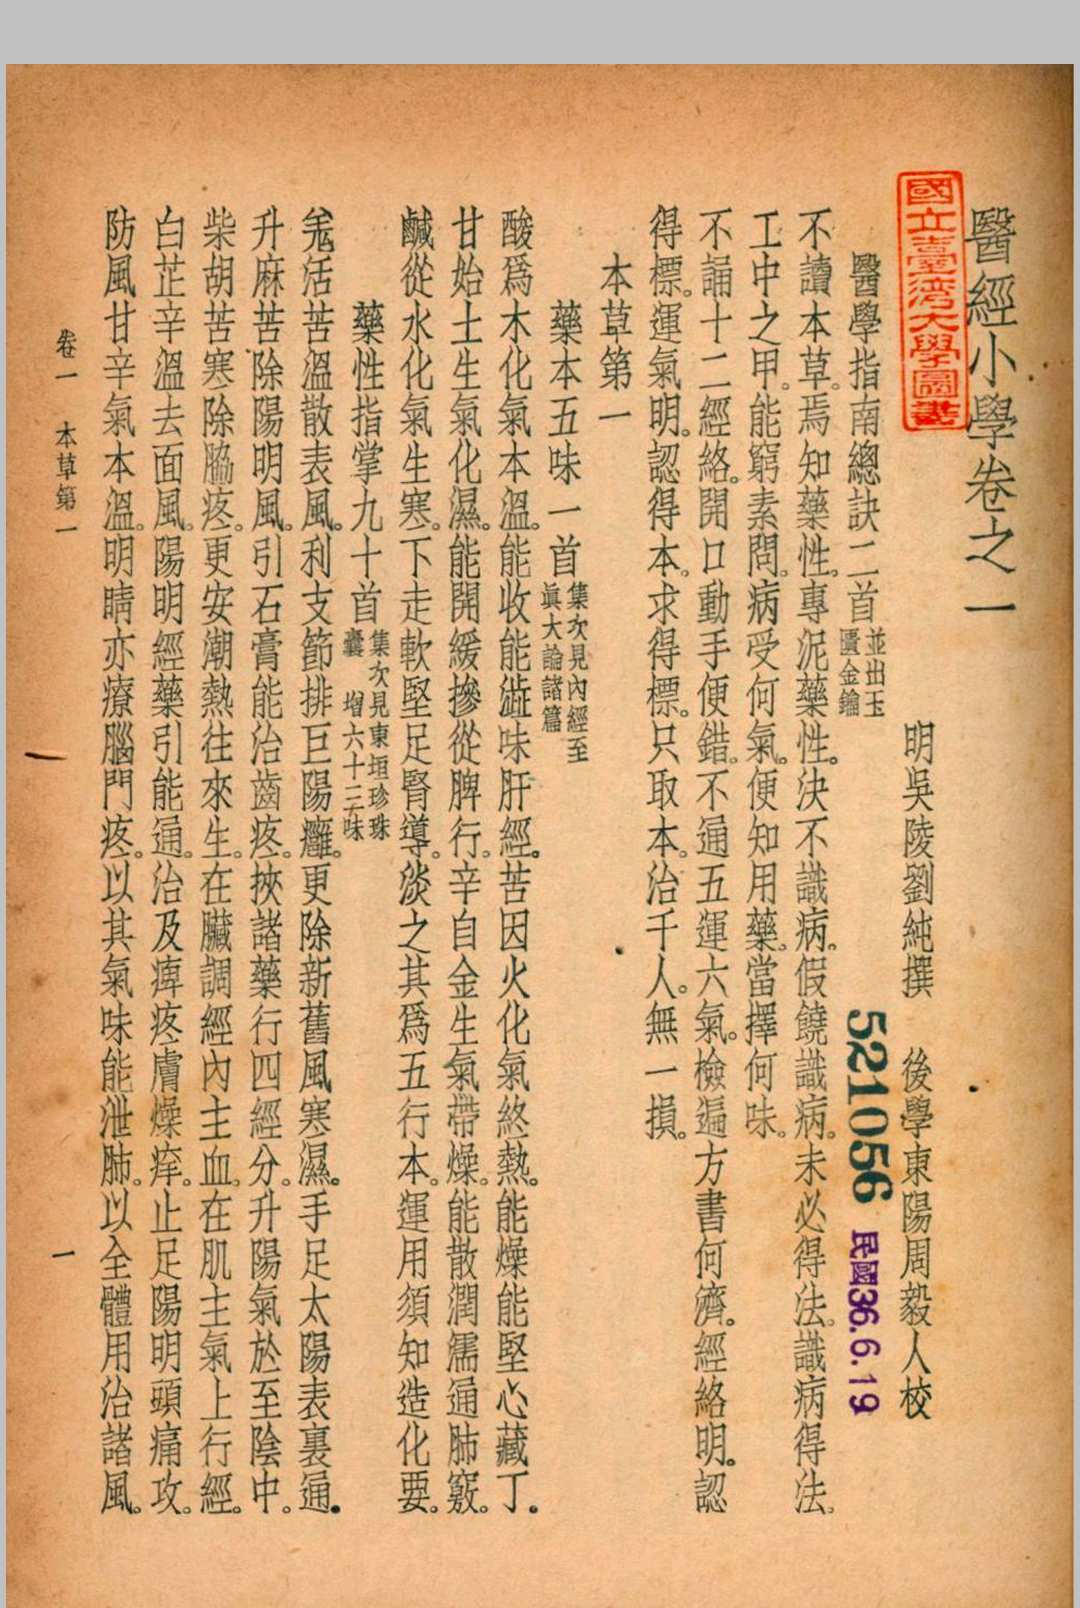 醫經小學卷之一
國立臺灣大學圖書
明吳陵劉純撰　後學東陽周毅人校
醫學指南總訣二首並出玉匱金鑰
521056
民國36.6.19
不讀本草。焉知藥性。專泥藥性。決不識病。假饒識病。未必得法。識病得法。
工中之甲。能窮素問。病受何氣。便知用藥。當擇何味。
不誦十二經絡。開口動手便錯。不通五運六氣。檢遍方書何濟。經絡明。認
得標。運氣明。認得本。求得標。只取本。治千人。無一損。
本草第一
藥本五味一首集次見內經至眞大論諸篇
酸爲木化氣本溫。能收能澁味肝經。苦因火化氣終熱。能燥能堅心藏丁。
甘始土生氣化濕。能開緩摻從脾行。辛自金生氣帶燥。能散潤濡通肺竅。
鹹從水化氣生寒。下走軟堅足腎導。淡之其爲五行本。運用須知造化要。
藥性指掌九十首集次見東垣珍珠囊　增六十三味
羗活苦溫散表風。利支節排巨陽癰。更除新舊風寒濕。手足太陽表裏通。
升麻苦除陽明風。引石膏能治齒疼。挾諸藥行四經分。升陽氣於至陰中。
柴胡苦寒除脇疼。更安潮熱往來生。在臟調經內主血。在肌主氣上行經。
白芷辛溫去面風。陽明經藥引能通。治及痺疼膚燥痒。止足陽明頭痛攻。
防風甘辛氣本溫。明睛亦療腦門疼。以其氣味能泄肺。以全體用治諸風。
卷一　本草第一
一